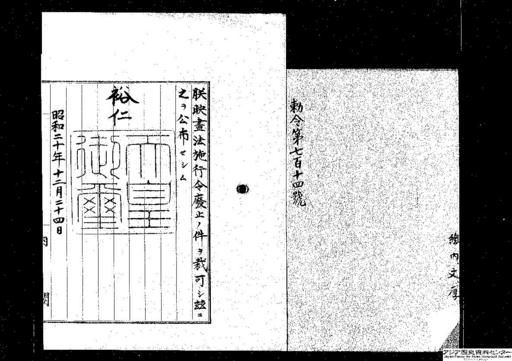 勅令第七百十四號
朕映畫法施行令廢止ノ件ヲ裁可シ茲ニ
之ヲ公布セシム
裕仁
天皇御璽
昭和二十年十二月二十四日
内閣
總内文庫
アジア歴史資料センター